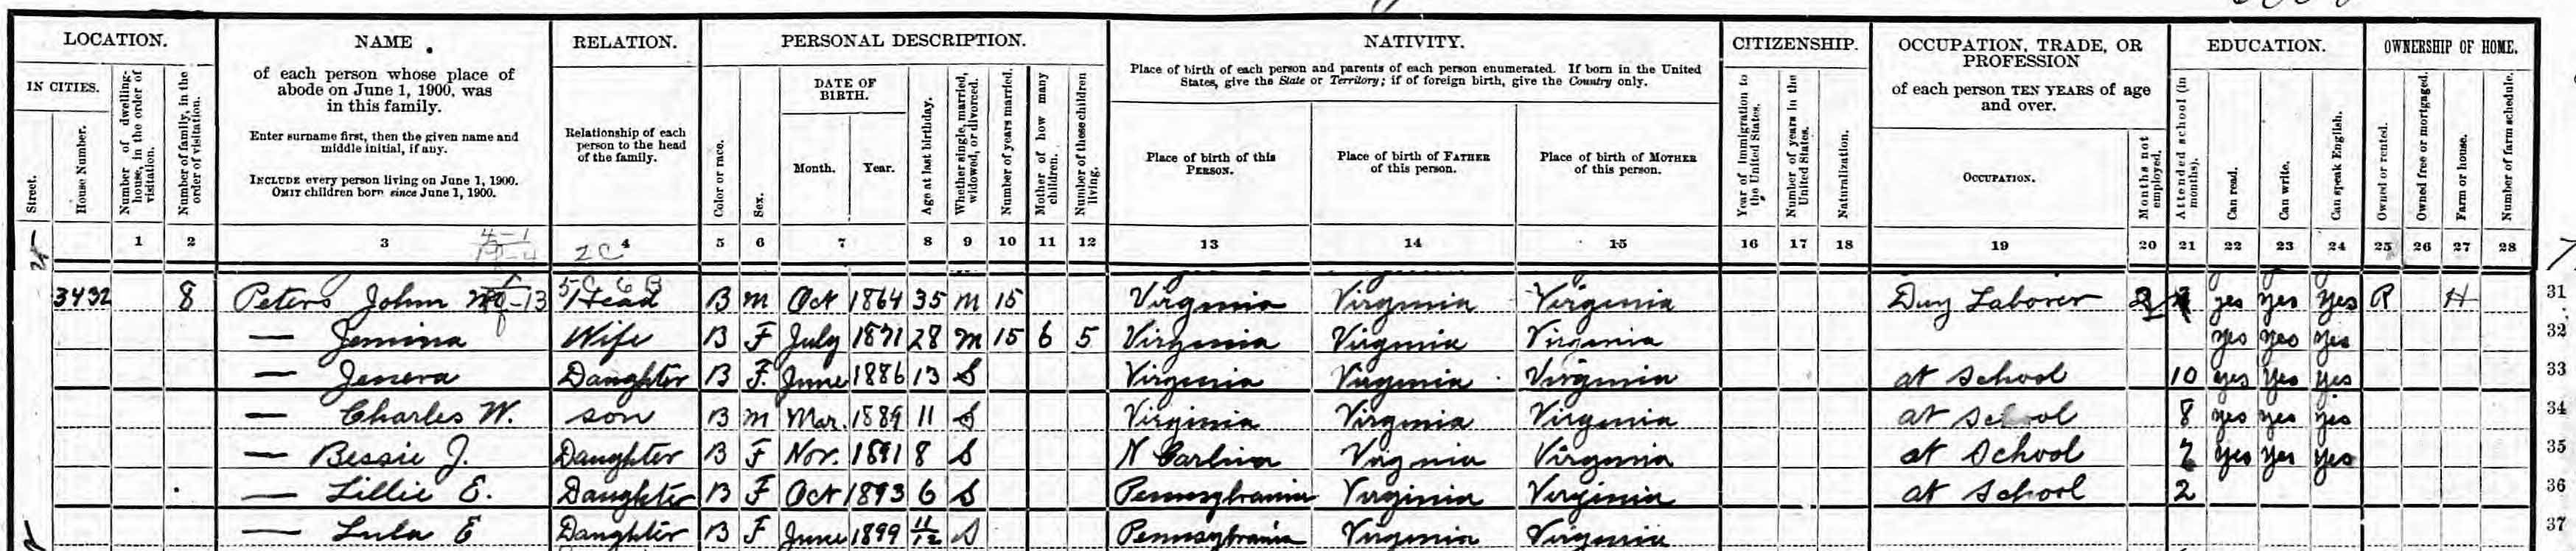 LOCATION. NAME. RELATION. PERSONAL DESCRIPTION. NATIVITY. CITIZENSHIP. OCCUPATION, TRADE, OR PROFESSION EDUCATION. OWNERSHIP OF HOME.
IN CITIES.
Street.
House Number.
Number of dwelling-house, in the order of visitation.
Number of family, in the order of visitation.
of each person whose place of
abode on June 1, 1900, was
in this family.
Enter surname first, then the given name and
middle initial, if any.
INCLUDE every person living on June 1, 1900.
OMIT children born since June 1, 1900.
Relationship of each
person to the head
of the family.
Color or race.
Sex.
DATE OF
BIRTH.
Month. Year.
Age at last birthday.
Whether single, married, widowed, or divorced.
Number of years married.
Mother of how many children.
Number of these children living.
Place of birth of each person and parents of each person enumerated. If born in the United
States, give the State or Territory; if of foreign birth, give the Country only.
Place of birth of this
PERSON.
Place of birth of FATHER
of this person.
Place of birth of MOTHER
of this person.
Year of immigration to the United States.
Number of years in the United States.
Naturalization.
of each person TEN YEARS of age
and over.
OCCUPATION.
Months not employed.
Attended school (in months).
Can read.
Can write.
Can speak English.
Owned or rented.
Owned free or mortgaged.
Farm or house.
Number of farm schedule.
1 2 3 4 5 6 7 8 9 10 11 12 13 14 15 16 17 18 19 20 21 22 23 24 25 26 27 28
3432 8 Peters John Head B M Oct 1864 35 M 15 Virginia Virginia Virginia Day Laborer 2 yes yes yes R H 31
— Jemima Wife B F July 1871 28 M 15 6 5 Virginia Virginia Virginia yes yes yes 32
— Jenera Daughter B F. June 1886 13 S Virginia Virginia Virginia at School 10 yes yes yes 33
— Charles W. son B M Mar. 1889 11 S Virginia Virginia Virginia at School 8 yes yes yes 34
— Bessie J. Daughter B F Nov. 1891 8 S N Carlina Virginia Virginia at School yes yes yes 35
— Lillie E. Daughter B F Oct 1893 6 S Pennsylvania Virginia Virginia at School 2 36
— Lula E Daughter B F June 1899 11/12 S Pennsylvania Virginia Virginia 37